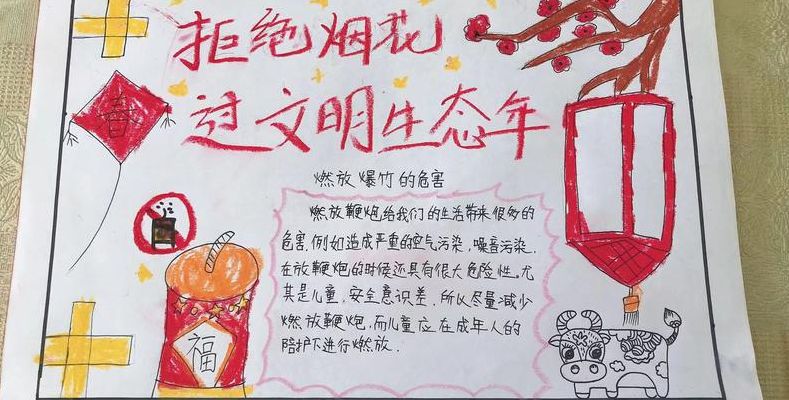 拒绝烟花
过文明生态年
春
燃放爆竹的危害
燃放鞭炮给我们的生活带来很多的
危害,例如造成严重的空气污染,噪音污染.
在放鞭炮的时候还具有很大危险性,尤
其是儿童,安全意识差,所以尽量减少
燃放鞭炮,而儿童应在成年人的
陪护下进行燃放.
福